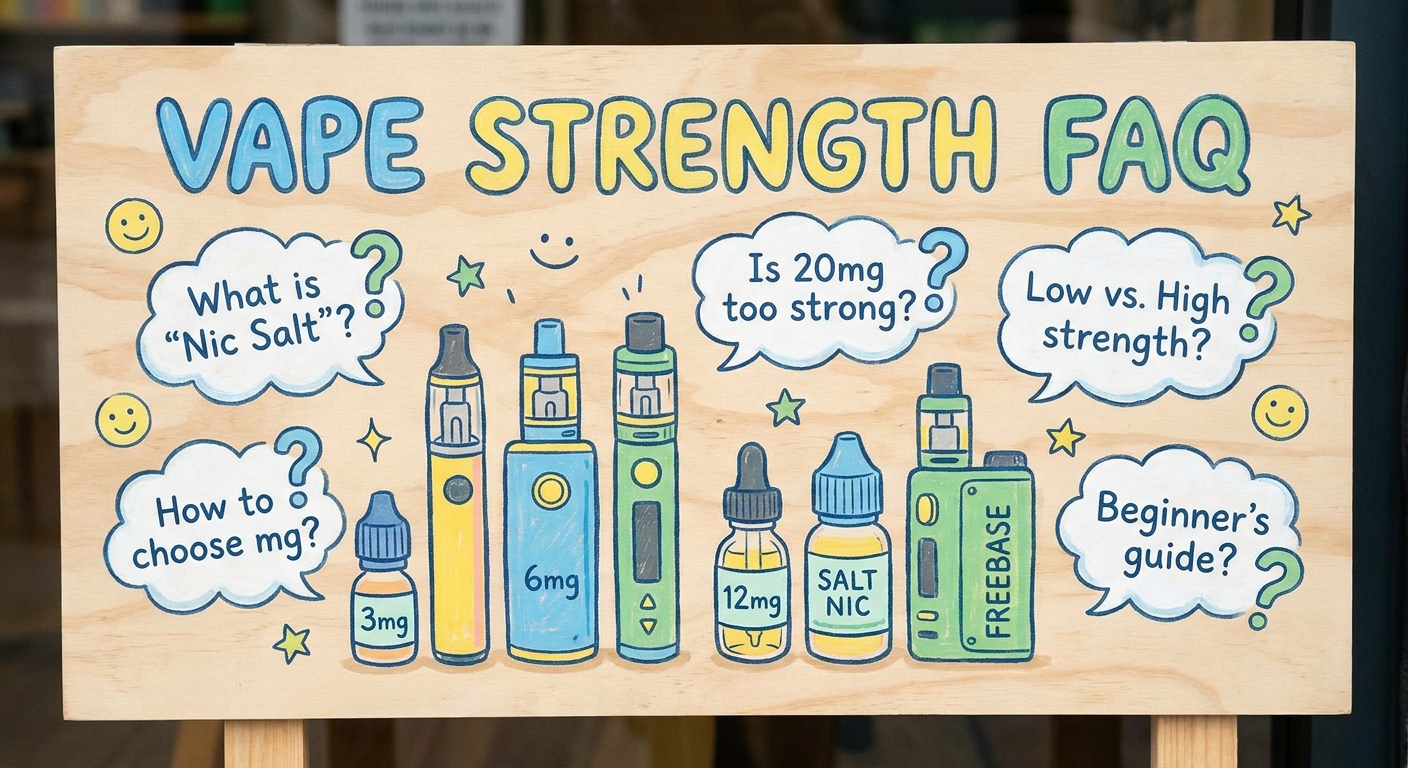 VAPE STRENGTH FAQ
What is
"Nic Salt"?
?
Is 20mg
too strong?
?
Low vs. High
strength?
?
How to
choose mg?
?
Beginner's
guide?
?
3mg
6mg
12mg
SALT
NIC
FREEBASE